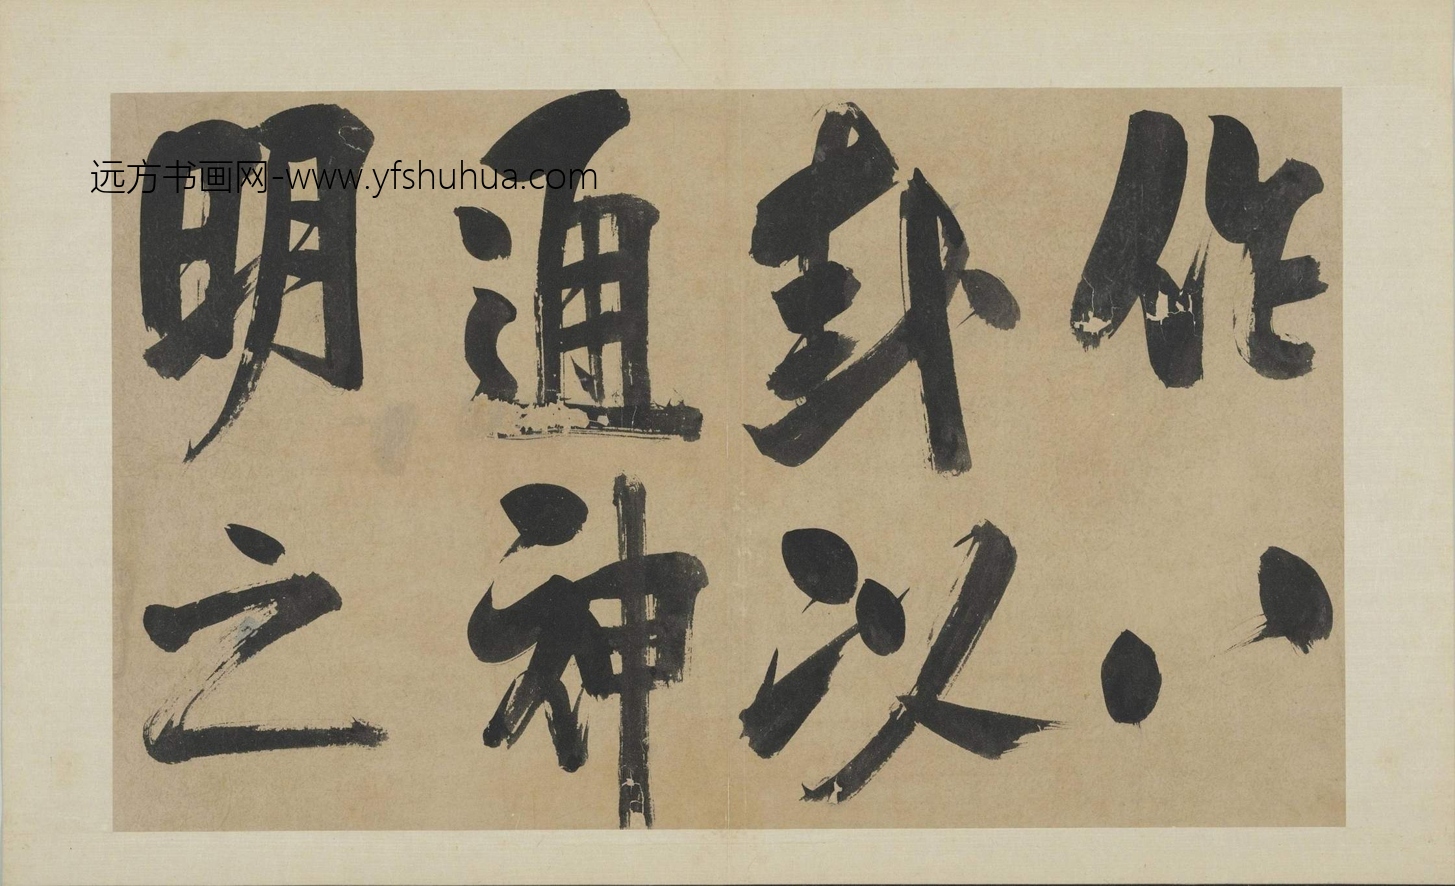 作八
卦以
通神
明之
远方书画网-www.yfshuhua.com